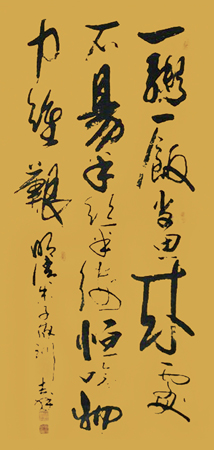 一粥一飯当思来處
不易半絲半縷恒念物
力維艱 明清朱子家訓